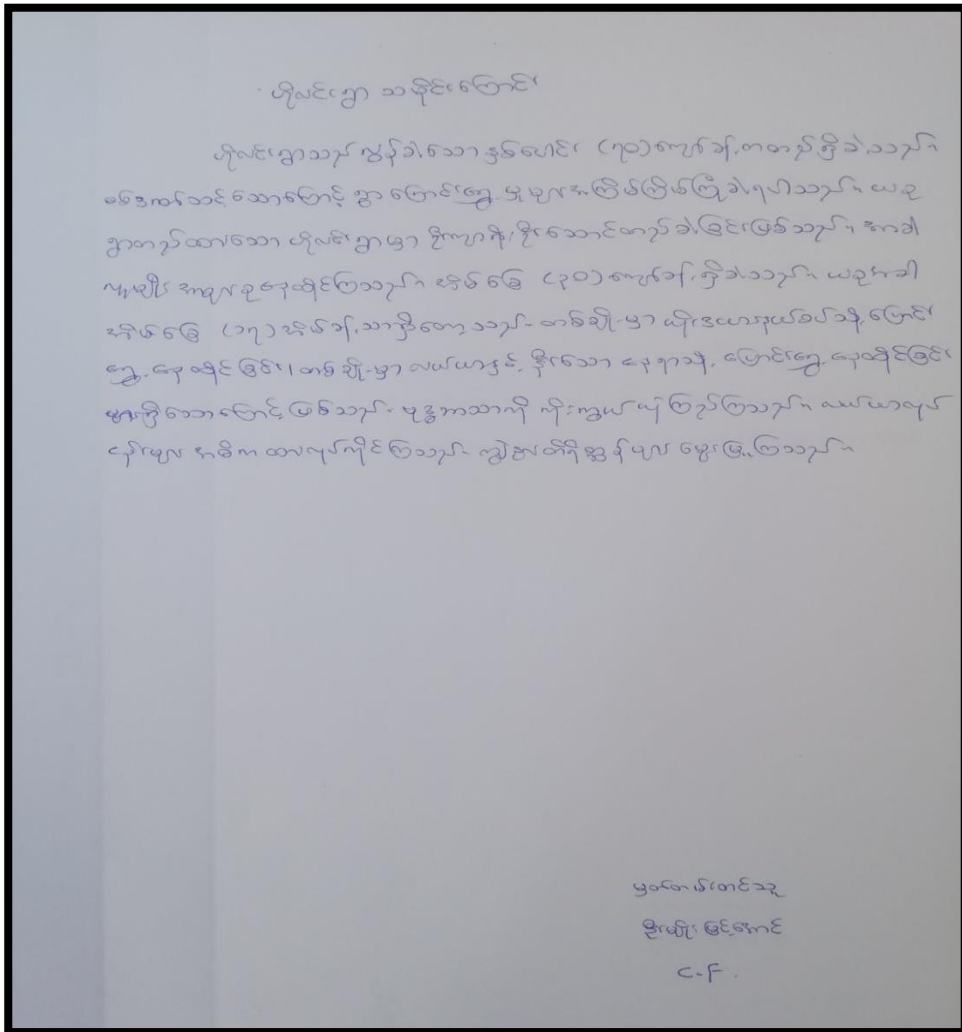 ဟိုလင်းရွာ သမိုင်းကြောင်း
ဟိုလင်းရွာသည် လွန်ခဲ့သောနှစ်ပေါင်း (၇၀)ကျော်ခန့်ကတည်ရှိခဲ့သည်။
စစ်ဒဏ်သင့်သောကြောင့် ရွာ ပြောင်းရွှေ့မှုများအကြိမ်ကြိမ်ကြုံခဲ့ရပါသည်။ ယခု
ရွာတည်ထားသော ဟိုလင်းရွာမှာ ဦးကျာရီး ဦးဆောင်တည်ခဲ့ခြင်းဖြစ်သည်။ အာခါ
လူမျိုး အများစုနေထိုင်ကြသည်။ အိမ်ခြေ (၃၀)ကျော်ခန့်ရှိခဲ့သည်။ ယခုအခါ
အိမ်ခြေ (၁၇)အိမ်ခန့်သာရှိတော့သည်။ တစ်ချို့မှာ ယိုးဒယားနယ်စပ်သို့ ပြောင်း
ရွှေ့နေထိုင်ခြင်း၊ တစ်ချို့မှာ လယ်ယာနှင့် နီးသော နေရာသို့ ပြောင်းရွှေ့နေထိုင်ခြင်း
များရှိသောကြောင့်ဖြစ်သည်။ ဗုဒ္ဓဘာသာကို ကိုးကွယ်ယုံကြည်ကြသည်။ လယ်ယာလုပ်
ငန်းများ အဓိကထားလုပ်ကိုင်ကြသည်။ ကျွဲနွားတိရိစ္ဆာန်များ မွေးမြူကြသည်။
မှတ်တမ်းတင်သူ
ဦးမျိုးမြင့်အောင်
C.F.